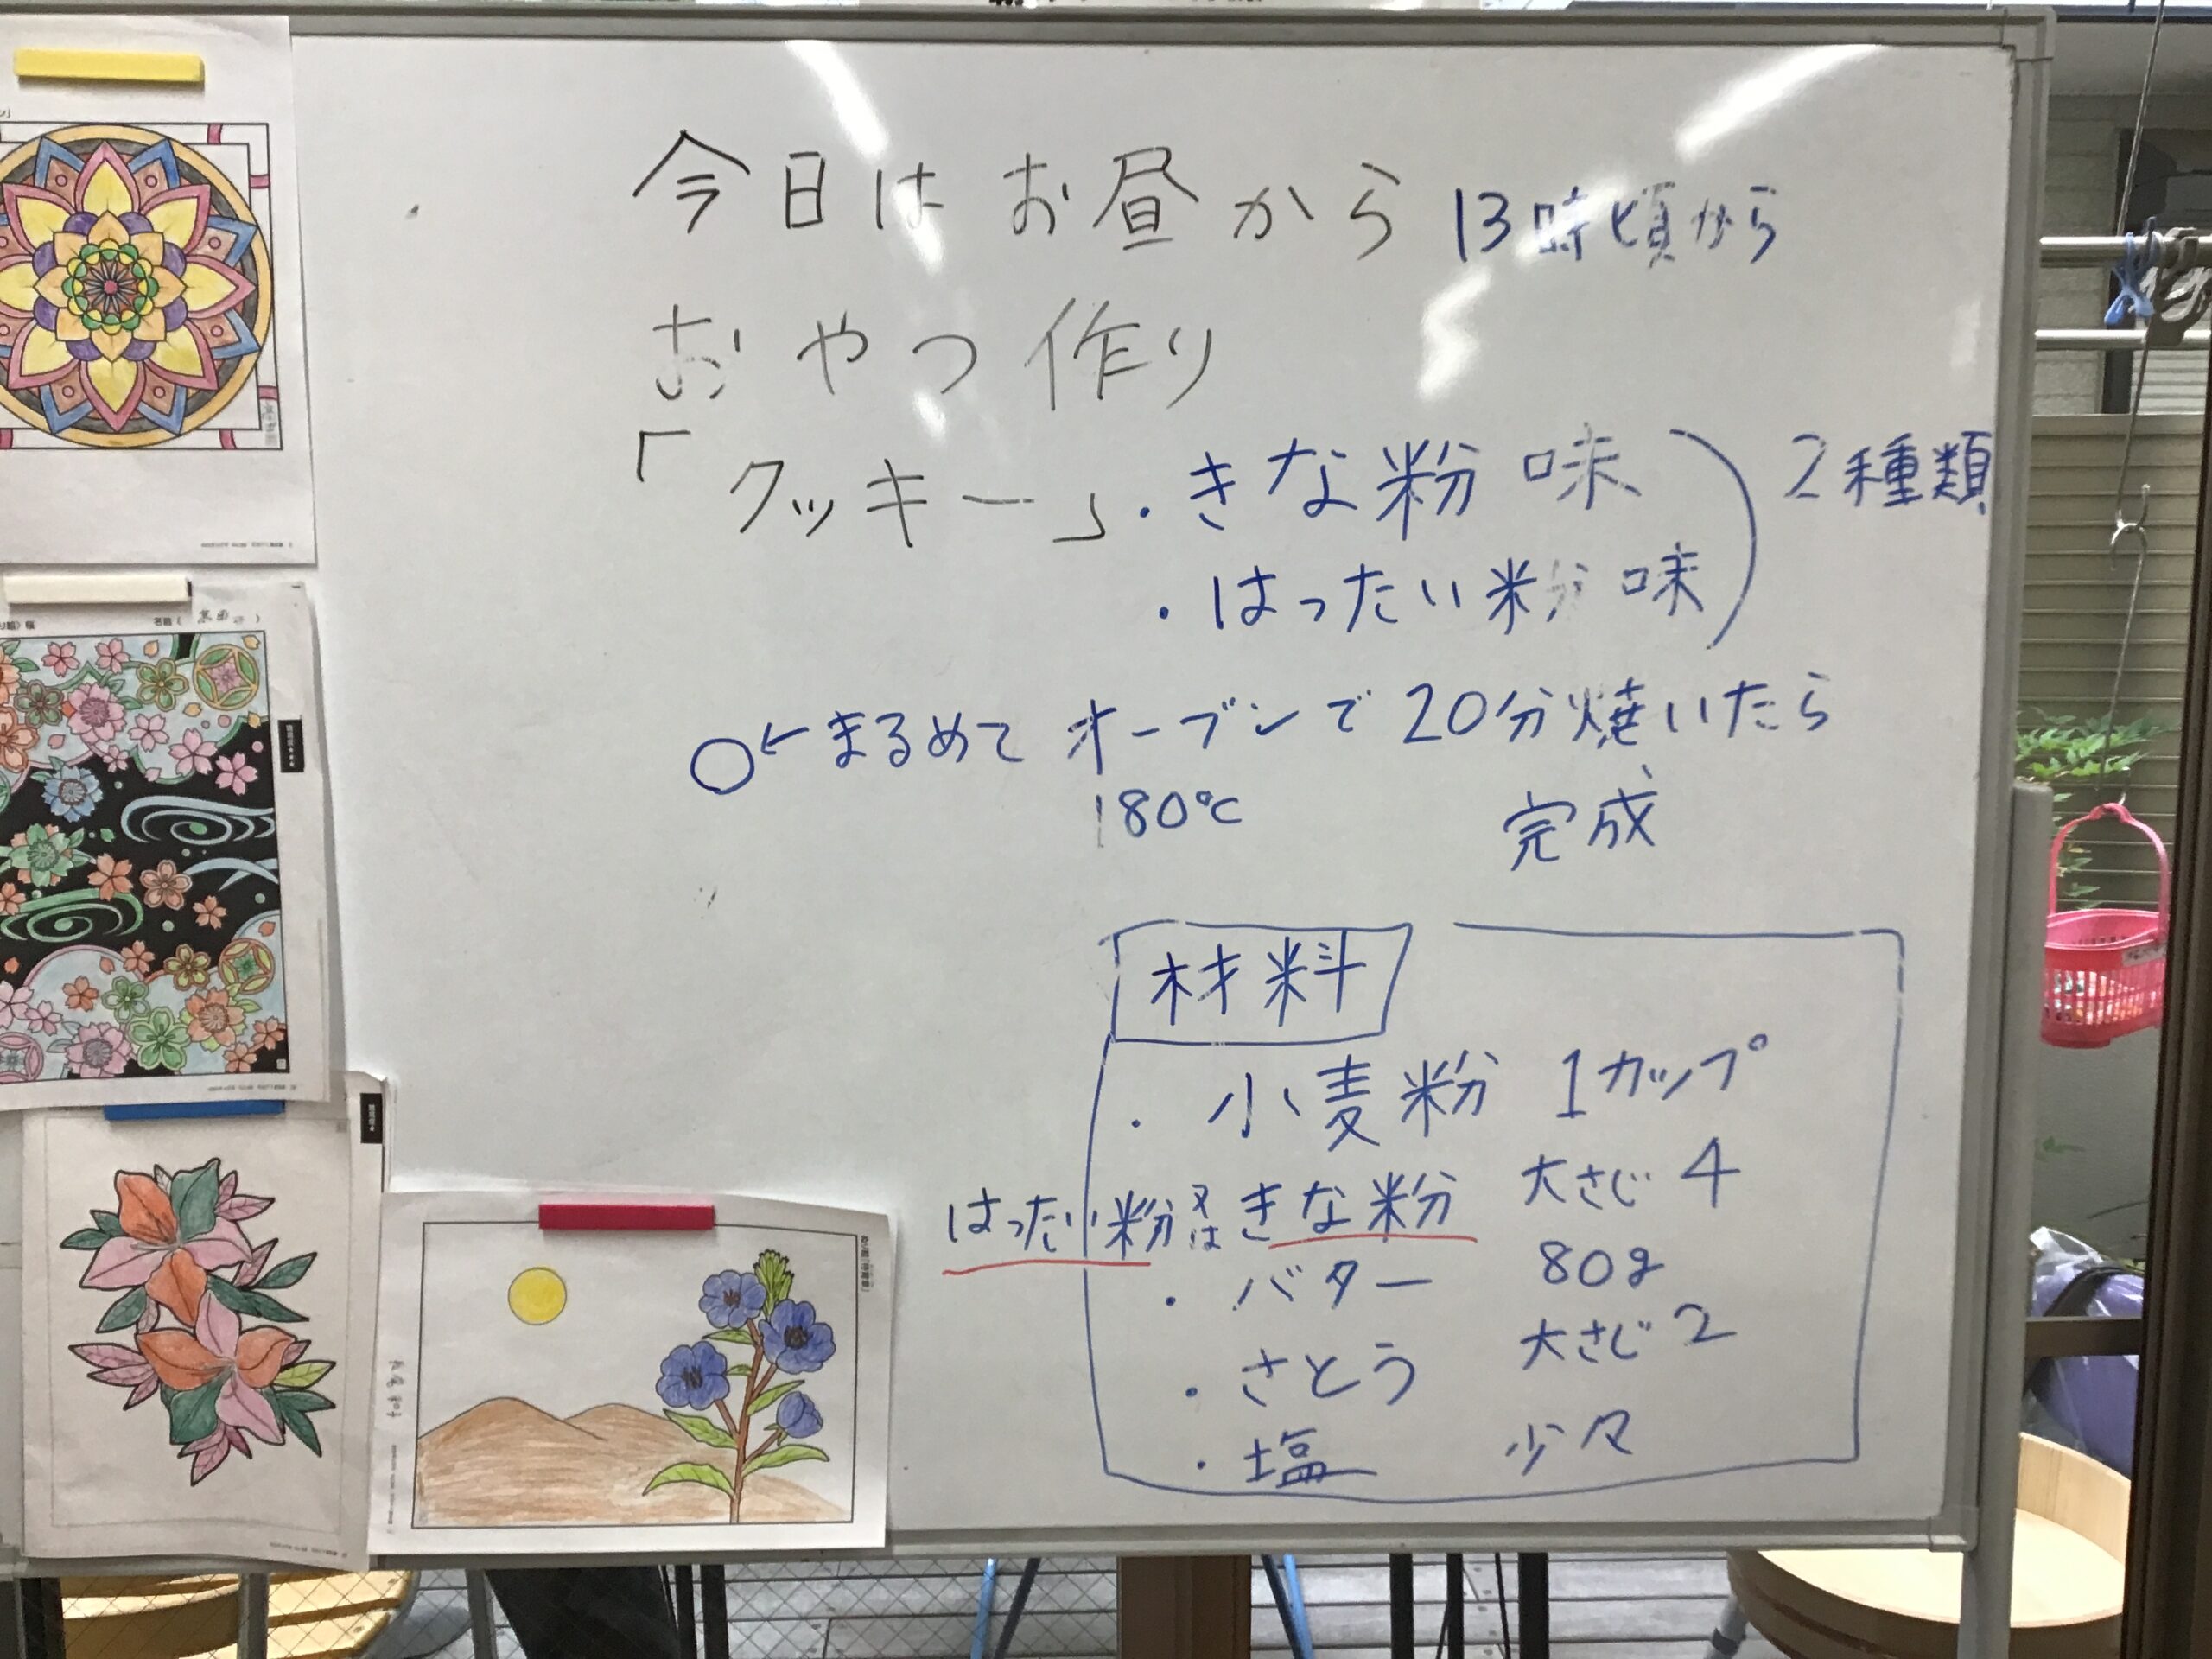 今日はお昼から 13時頃から
おやつ作り
「クッキー」・きな粉味 2種類
・はったい粉味
○←まるめて オーブンで 20分焼いたら
180℃ 完成
材料
・小麦粉 1カップ
はったい粉又はきな粉 大さじ4
・バター 80g
・さとう 大さじ2
・塩 少々